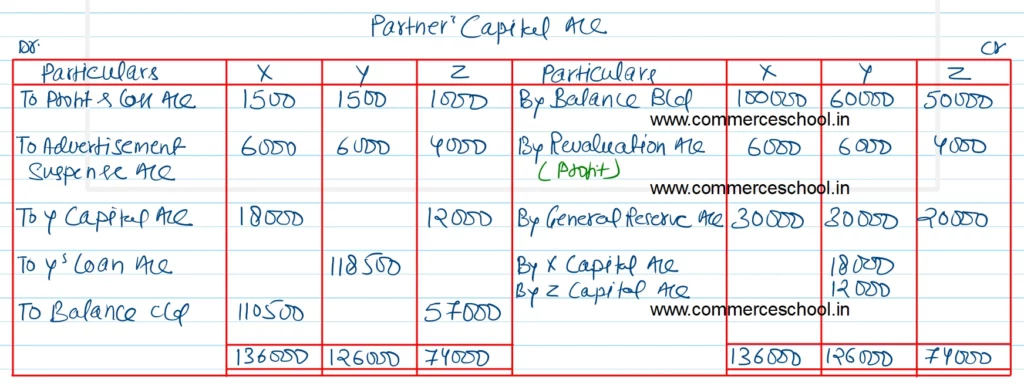 Partner's Capital A/c
Dr. Cr
Particulars X Y Z Particulars X Y Z
To Profit & Loss A/c 1500 1500 1000 By Balance B/d 100000 60000 50000
www.commerceschool.in
To Advertisement 6000 6000 4000 By Revaluation A/c 6000 6000 4000
Suspense A/c (Profit)
www.commerceschool.in
To Y Capital A/c 18000 12000 By General Reserve A/c 30000 30000 20000
To Y's Loan A/c 118500 By X Capital A/c 18000
By Z Capital A/c 12000
To Balance c/d 110500 57000 www.commerceschool.in
136000 126000 74000 136000 126000 74000